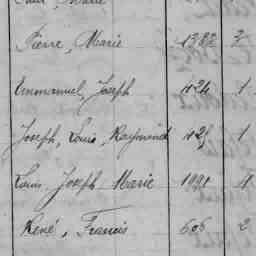 Marie
Pierre, Marie 1382 3
Emmanuel, Joseph 424 1
Joseph, Louis, Raymond 1
Louis Joseph Marie 1991 4
René, Francis 606 2